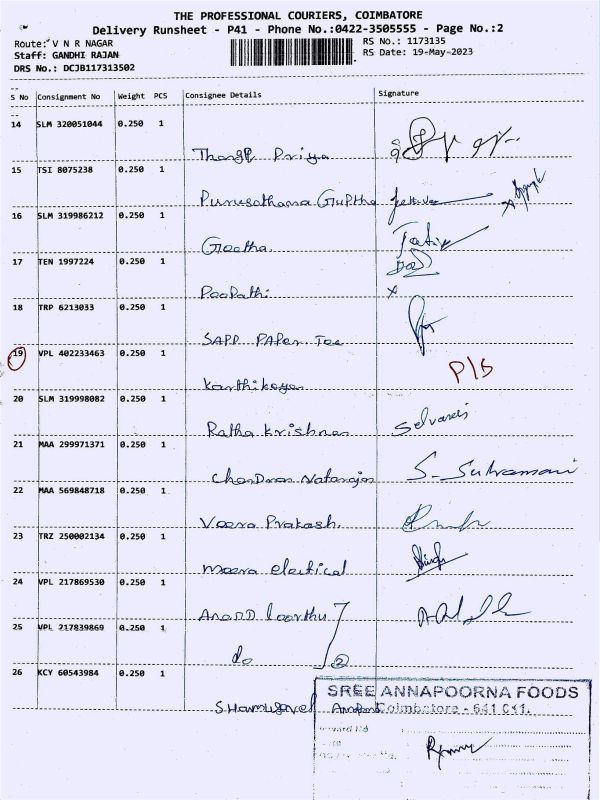 THE PROFESSIONAL COURIERS, COIMBATORE
Delivery Runsheet - P41 - Phone No.:0422-3505555 - Page No.:2
Route: V N R NAGAR RS No.: 1173135
Staff: GANDHI RAJAN RS Date: 19-May-2023
DRS No.: DCJB117313502
S No Consignment No Weight PCS Consignee Details Signature
14 SLM 320051044 0.250 1
Priya
15 TSI 8075238 0.250 1
Purusothama Guptha
16 SLM 319986212 0.250 1
Geetha
17 TEN 1997224 0.250 1
Poopathi
x
18 TRP 6213033 0.250 1
SAPP PAPer Tee
19 VPL 402233463 0.250 1 P/S
Karthikeyan
20 SLM 319998082 0.250 1
Ratha Krishnan Selvaraj
21 MAA 299971371 0.250 1
Chandran Natarajan S. Subramani
22 MAA 569848718 0.250 1
Veera Prakash.
23 TRZ 250002134 0.250 1
meera electical
24 VPL 217869530 0.250 1
Anand
25 VPL 217839869 0.250 1
do 2
26 KCY 60543984 0.250 1
SREE ANNAPOORNA FOODS
Shanmugavel Coimbatore - 641 011.